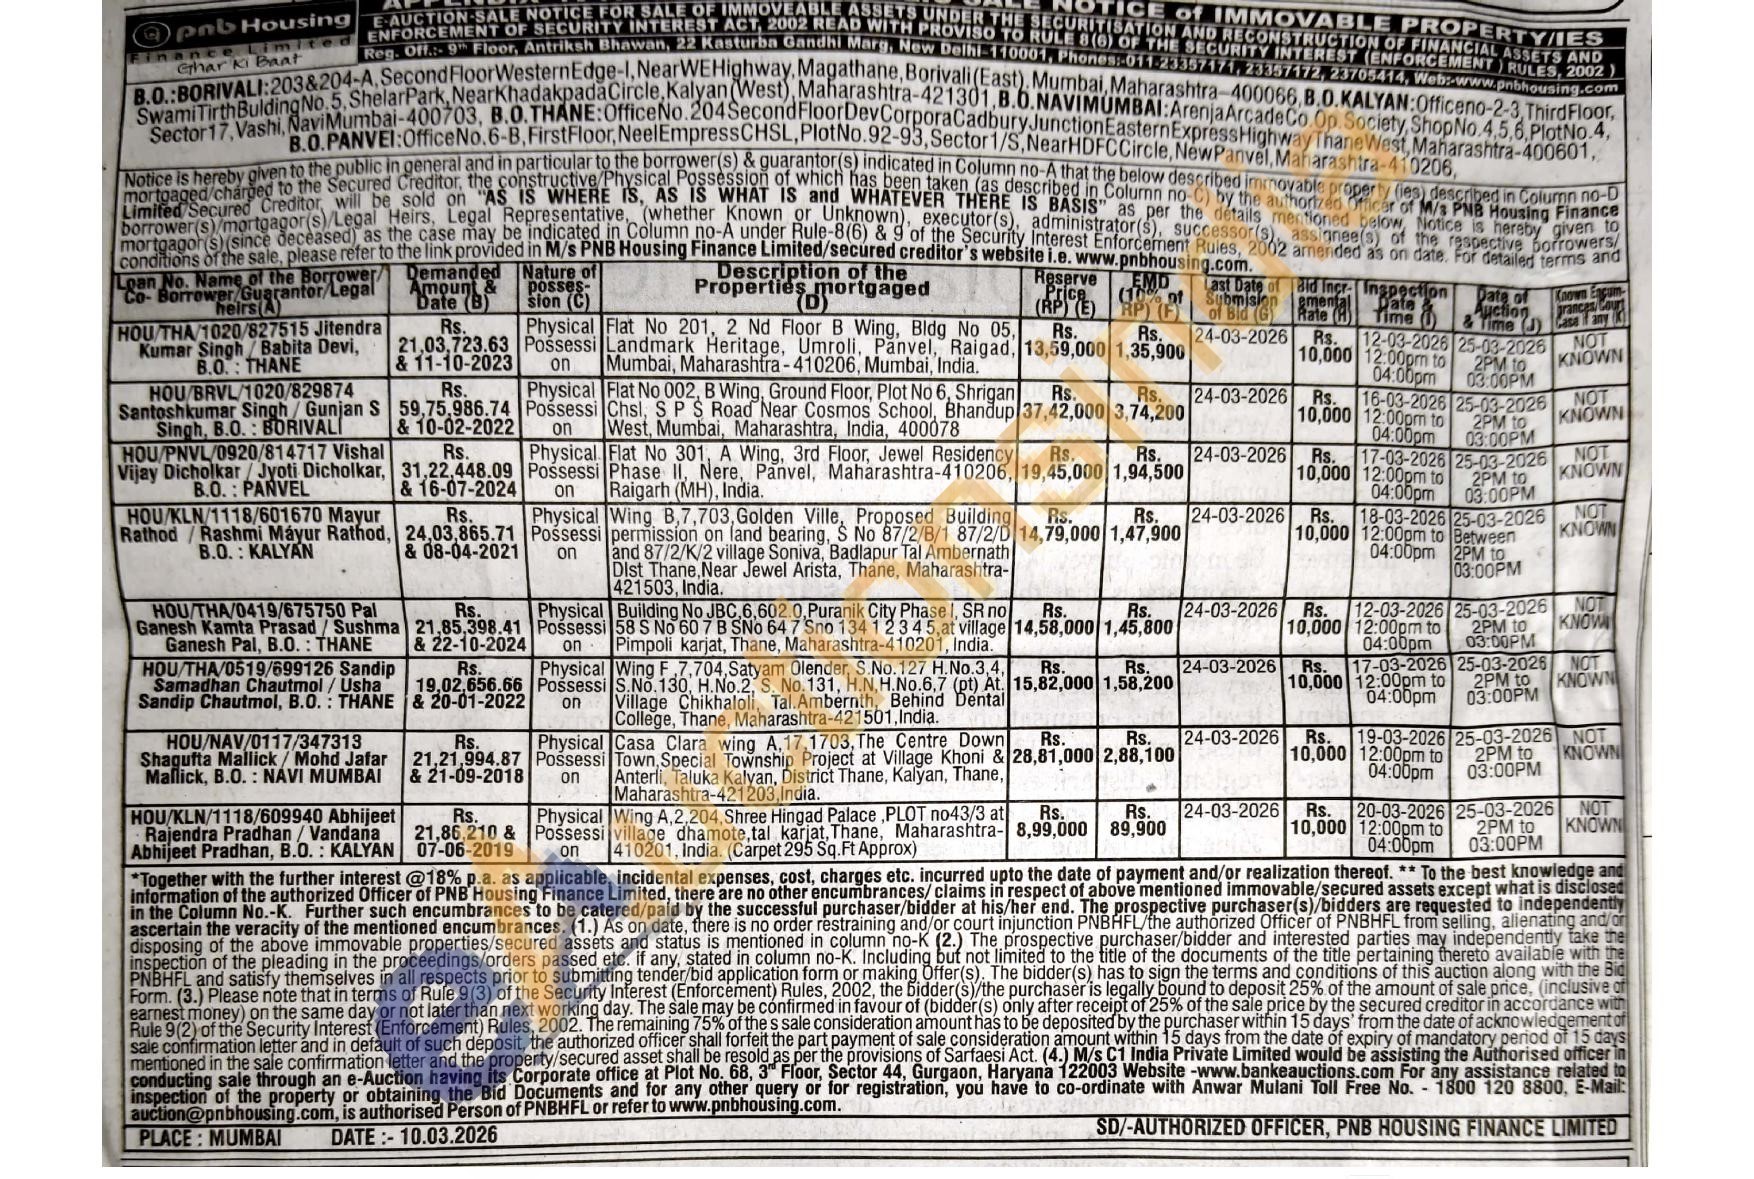 pnb Housing
Finance Limited
Ghar Ki Baat
NOTICE of IMMOVABLE PROPERTY/IES
E-AUCTION-SALE NOTICE FOR SALE OF IMMOVEABLE ASSETS UNDER THE SECURITISATION AND RECONSTRUCTION OF FINANCIAL ASSETS AND
ENFORCEMENT OF SECURITY INTEREST ACT, 2002 READ WITH PROVISO TO RULE 8(6) OF THE SECURITY INTEREST (ENFORCEMENT) RULES, 2002 )
Reg. Off.:- 9th Floor, Antriksh Bhawan, 22 Kasturba Gandhi Marg, New Delhi-110001, Phones:-011-23357171, 23357172, 23705414, Web:-www.pnbhousing.com
B.O.:BORIVALI:203&204-A, Second Floor Western Edge-I, Near WE Highway, Magathane, Borivali (East), Mumbai, Maharashtra-400066, B.O.KALYAN: Office no-2-3, Third Floor,
Swami Tirth Bulding No. 5, Shelar Park, Near Khadakpada Circle, Kalyan (West), Maharashtra-421301, B.O.NAVI MUMBAI: Arenja Arcade Co. Op. Society, Shop No. 4,5,6, Plot No. 4,
Sector 17, Vashi, Navi Mumbai-400703, B.O. THANE: Office No. 204 Second Floor Dev Corpora Cadbury Junction Eastern Express Highway Thane West, Maharashtra-400601,
B.O. PANVEl: Office No. 6-B, First Floor, Neel Empress CHSL, Plot No. 92-93, Sector 1/S, Near HDFC Circle, New Panvel, Maharashtra-410206,
Notice is hereby given to the public in general and in particular to the borrower(s) & guarantor(s) indicated in Column no-A that the below described immovable property (ies) described in Column no-D
mortgaged/charged to the Secured Creditor, the constructive/Physical Possession of which has been taken (as described in Column no-C) by the authorized Officer of M/s PNB Housing Finance
Limited/Secured Creditor, will be sold on "AS IS WHERE IS, AS IS WHAT IS and WHATEVER THERE IS BASIS" as per the details mentioned below. Notice is hereby given to
borrower(s)/mortgagor(s)/Legal Heirs, Legal Representative, (whether Known or Unknown), executor(s), administrator(s), successor(s), assignee(s) of the respective borrowers/
mortgagor(s)(since deceased) as the case may be indicated in Column no-A under Rule-8(6) & 9 of the Security Interest Enforcement Rules, 2002 amended as on date. For detailed terms and
conditions of the sale, please refer to the link provided in M/s PNB Housing Finance Limited/secured creditor's website i.e. www.pnbhousing.com.
Loan No. Name of the Borrower/ Co- Borrower/Guarantor/Legal heirs(A)
Demanded Amount & Date (B)
Nature of posses- sion (C)
Description of the Properties mortgaged (D)
Reserve Price (RP) (E)
EMD (10% of RP) (F)
Last Date of Submision of Bid (G)
Bid Incr- emental Rate (H)
Inspection Date & Time (I)
Date of Auction & Time (J)
Known Encum- brances/Court Case if any (K)
HOU/THA/1020/827515 Jitendra
Kumar Singh / Babita Devi,
B.O. : THANE
Rs.
21,03,723.63
& 11-10-2023
Physical
Possessi
on
Flat No 201, 2 Nd Floor B Wing, Bldg No 05,
Landmark Heritage, Umroli, Panvel, Raigad,
Mumbai, Maharashtra - 410206, Mumbai, India.
Rs.
13,59,000
Rs.
1,35,900
24-03-2026
Rs.
10,000
12-03-2026
12:00pm to
04:00pm
25-03-2026
2PM to
03:00PM
NOT
KNOWN
HOU/BRVL/1020/829874
Santoshkumar Singh / Gunjan S
Singh, B.O. : BORIVALI
Rs.
59,75,986.74
& 10-02-2022
Physical
Possessi
on
Flat No 002, B Wing, Ground Floor, Plot No 6, Shrigan
Chsl, S P S Road Near Cosmos School, Bhandup
West, Mumbai, Maharashtra, India, 400078
Rs.
37,42,000
Rs.
3,74,200
24-03-2026
Rs.
10,000
16-03-2026
12:00pm to
04:00pm
25-03-2026
2PM to
03:00PM
NOT
KNOWN
HOU/PNVL/0920/814717 Vishal
Vijay Dicholkar / Jyoti Dicholkar,
B.O. : PANVEL
Rs.
31,22,448.09
& 16-07-2024
Physical
Possessi
on
Flat No 301, A Wing, 3rd Floor, Jewel Residency
Phase II, Nere, Panvel, Maharashtra-410206,
Raigarh (MH), India.
Rs.
19,45,000
Rs.
1,94,500
24-03-2026
Rs.
10,000
17-03-2026
12:00pm to
04:00pm
25-03-2026
2PM to
03:00PM
NOT
KNOWN
HOU/KLN/1118/601670 Mayur
Rathod / Rashmi Mayur Rathod,
B.O. : KALYAN
Rs.
24,03,865.71
& 08-04-2021
Physical
Possessi
on
Wing B,7,703,Golden Ville, Proposed Building
permission on land bearing, S No 87/2/B/1 87/2/D
and 87/2/K/2 village Soniva, Badlapur Tal Ambernath
DIst Thane,Near Jewel Arista, Thane, Maharashtra-
421503, India.
Rs.
14,79,000
Rs.
1,47,900
24-03-2026
Rs.
10,000
18-03-2026
12:00pm to
04:00pm
25-03-2026
Between
2PM to
03:00PM
NOT
KNOWN
HOU/THA/0419/675750 Pal
Ganesh Kamta Prasad / Sushma
Ganesh Pal, B.O. : THANE
Rs.
21,85,398.41
& 22-10-2024
Physical
Possessi
on
Building No JBC,6,602.0,Puranik City Phase I, SR no
58 S No 60 7 B SNo 64 7 Sno 134 1 2 3 4 5,at village
Pimpoli karjat, Thane, Maharashtra-410201, India.
Rs.
14,58,000
Rs.
1,45,800
24-03-2026
Rs.
10,000
12-03-2026
12:00pm to
04:00pm
25-03-2026
2PM to
03:00PM
NOT
KNOWN
HOU/THA/0519/699126 Sandip
Samadhan Chautmol / Usha
Sandip Chautmol, B.O. : THANE
Rs.
19,02,656.66
& 20-01-2022
Physical
Possessi
on
Wing F ,7,704,Satyam Olender, S.No.127 H.No.3,4,
S.No.130, H.No.2, S. No.131, H.N,H.No.6,7 (pt) At.
Village Chikhaloli, Tal.Ambernth, Behind Dental
College, Thane, Maharashtra-421501,India.
Rs.
15,82,000
Rs.
1,58,200
24-03-2026
Rs.
10,000
17-03-2026
12:00pm to
04:00pm
25-03-2026
2PM to
03:00PM
NOT
KNOWN
HOU/NAV/0117/347313
Shagufta Mallick / Mohd Jafar
Mallick, B.O. : NAVI MUMBAI
Rs.
21,21,994.87
& 21-09-2018
Physical
Possessi
on
Casa Clara wing A,17,1703,The Centre Down
Town,Special Township Project at Village Khoni &
Anterli, Taluka Kalyan, District Thane, Kalyan, Thane,
Maharashtra-421203,India.
Rs.
28,81,000
Rs.
2,88,100
24-03-2026
Rs.
10,000
19-03-2026
12:00pm to
04:00pm
25-03-2026
2PM to
03:00PM
NOT
KNOWN
HOU/KLN/1118/609940 Abhijeet
Rajendra Pradhan / Vandana
Abhijeet Pradhan, B.O. : KALYAN
Rs.
21,86,210 &
07-06-2019
Physical
Possessi
on
Wing A,2,204,Shree Hingad Palace ,PLOT no43/3 at
village dhamote,tal karjat,Thane, Maharashtra-
410201, India. (Carpet 295 Sq.Ft Approx)
Rs.
8,99,000
Rs.
89,900
24-03-2026
Rs.
10,000
20-03-2026
12:00pm to
04:00pm
25-03-2026
2PM to
03:00PM
NOT
KNOWN
*Together with the further interest @18% p.a. as applicable, incidental expenses, cost, charges etc. incurred upto the date of payment and/or realization thereof. ** To the best knowledge and
information of the authorized Officer of PNB Housing Finance Limited, there are no other encumbrances/ claims in respect of above mentioned immovable/secured assets except what is disclosed
in the Column No.-K. Further such encumbrances to be catered/paid by the successful purchaser/bidder at his/her end. The prospective purchaser(s)/bidders are requested to independently
ascertain the veracity of the mentioned encumbrances. (1.) As on date, there is no order restraining and/or court injunction PNBHFL/the authorized Officer of PNBHFL from selling, alienating and/or
disposing of the above immovable properties/secured assets and status is mentioned in column no-K (2.) The prospective purchaser/bidder and interested parties may independently take the
inspection of the pleading in the proceedings/orders passed etc. if any, stated in column no-K. Including but not limited to the title of the documents of the title pertaining thereto available with the
PNBHFL and satisfy themselves in all respects prior to submitting tender/bid application form or making Offer(s). The bidder(s) has to sign the terms and conditions of this auction along with the Bid
Form. (3.) Please note that in terms of Rule 9(3) of the Security Interest (Enforcement) Rules, 2002, the bidder(s)/the purchaser is legally bound to deposit 25% of the amount of sale price, (inclusive of
earnest money) on the same day or not later than next working day. The sale may be confirmed in favour of (bidder(s) only after receipt of 25% of the sale price by the secured creditor in accordance with
Rule 9(2) of the Security Interest (Enforcement) Rules, 2002. The remaining 75% of the s sale consideration amount has to be deposited by the purchaser within 15 days' from the date of acknowledgement of
sale confirmation letter and in default of such deposit, the authorized officer shall forfeit the part payment of sale consideration amount within 15 days from the date of expiry of mandatory period of 15 days
mentioned in the sale confirmation letter and the property/secured asset shall be resold as per the provisions of Sarfaesi Act. (4.) M/s C1 India Private Limited would be assisting the Authorised officer in
conducting sale through an e-Auction having its Corporate office at Plot No. 68, 3rd Floor, Sector 44, Gurgaon, Haryana 122003 Website -www.bankeauctions.com For any assistance related to
inspection of the property or obtaining the Bid Documents and for any other query or for registration, you have to co-ordinate with Anwar Mulani Toll Free No. - 1800 120 8800, E-Mail:
auction@pnbhousing.com, is authorised Person of PNBHFL or refer to www.pnbhousing.com.
PLACE : MUMBAI DATE :- 10.03.2026
SD/-AUTHORIZED OFFICER, PNB HOUSING FINANCE LIMITED